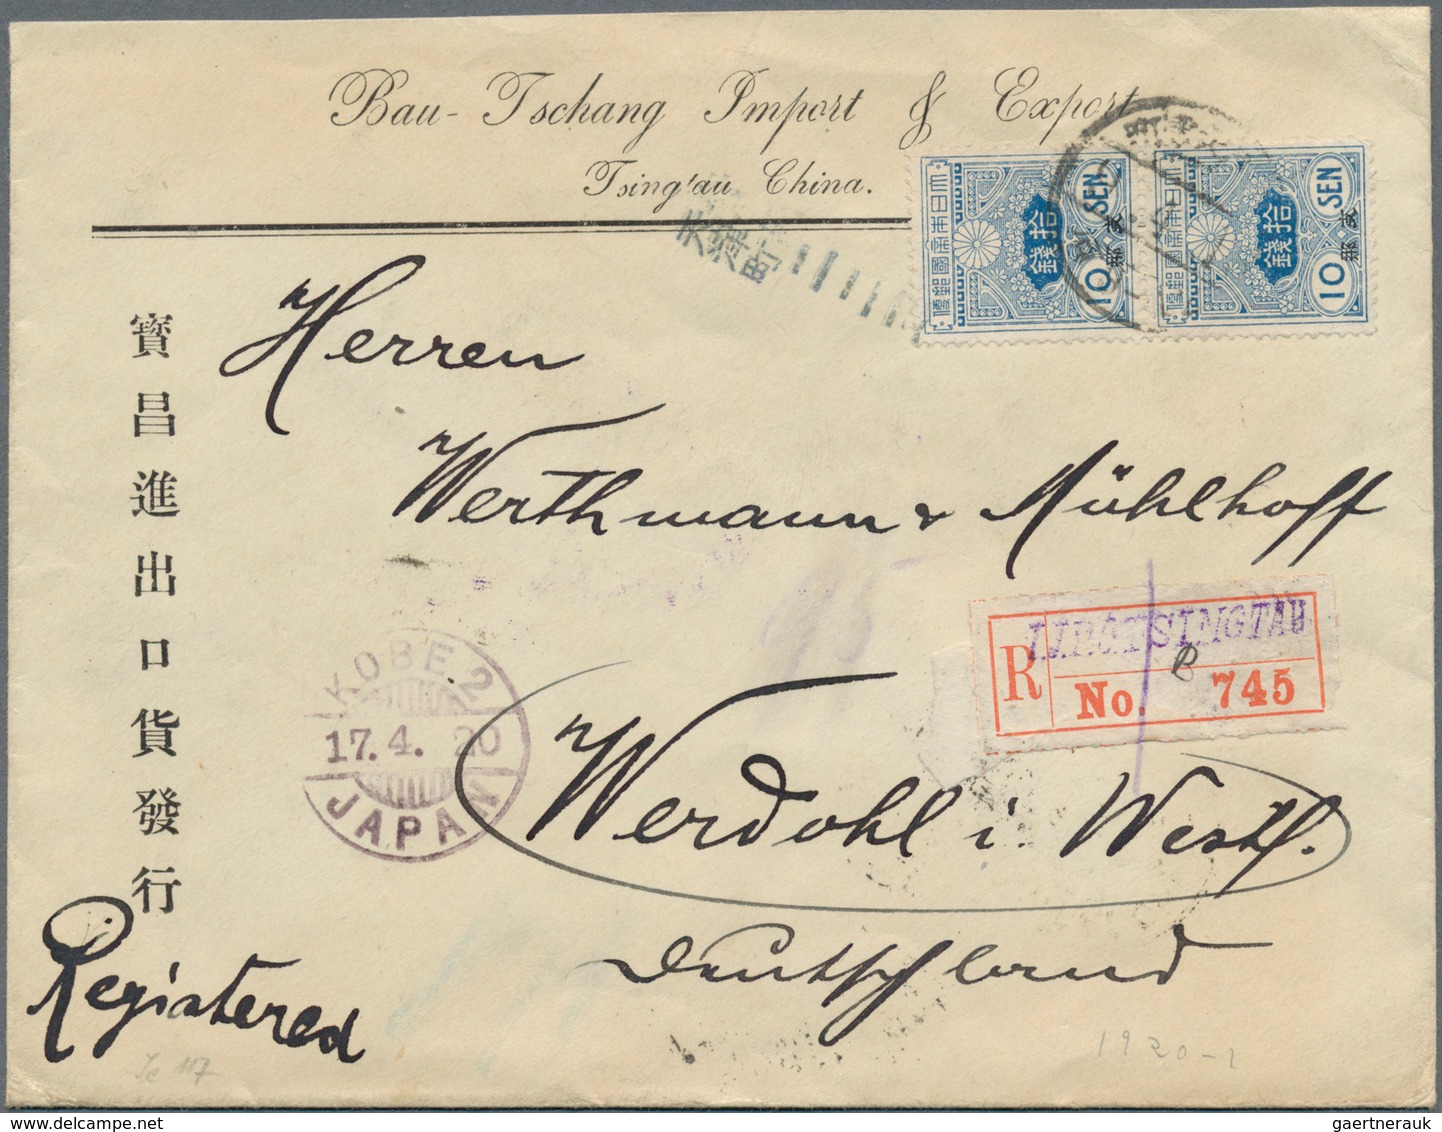 Bau-Tschang Import & Export
Tsing'tau China.
大日本帝國郵便
拾錢
10 SEN
支那
大日本帝國郵便
拾錢
10 SEN
支那
寶昌進出口貨發行
Herren
Werthmann & Mühlhoff
R
I.J.P.O. TSINGTAU
B
No. 745
KOBE 2
17. 4. 20
JAPAN
Werdohl i. Westf.
Deutschland
Registered
1920-1
gaertnerauk
gaertnerauk//delcampe.net